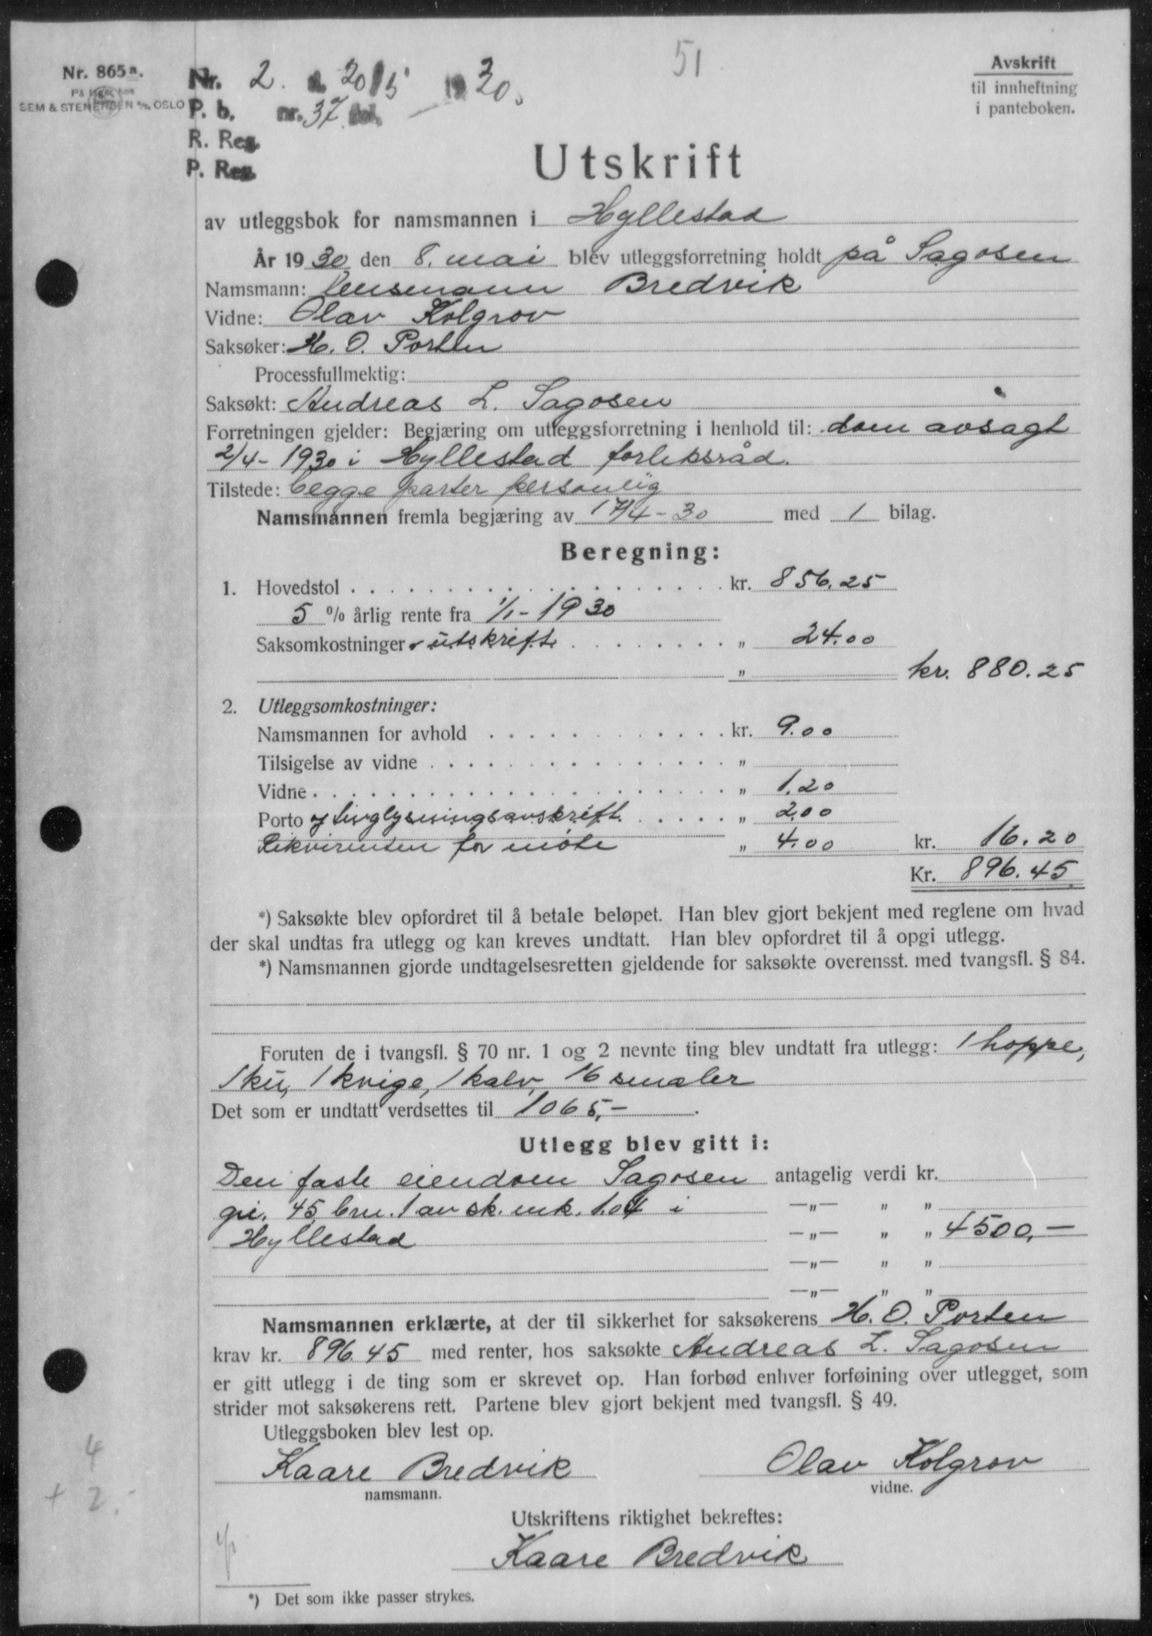 51
Nr. 865a.
På lager hos
SEM & STENERSEN A/S, OSLO
Nr. 2. 20/5 1930.
P. b. nr. 37 fol. —
R. Reg.
P. Reg.
Avskrift
til innheftning
i panteboken.
Utskrift
av utleggsbok for namsmannen i Hyllestad
År 1930 den 8. mai blev utleggsforretning holdt på Sagosen
Namsmann: lensmann Bredvik
Vidne: Olav Kolgrov
Saksøker: H. O. Porten
Processfullmektig:
Saksøkt: Andreas L. Sagosen
Forretningen gjelder: Begjæring om utleggsforretning i henhold til: dom avsagt
2/4-1930 i Hyllestad forliksråd.
Tilstede: begge parter personlig
Namsmannen fremla begjæring av 17/4-30 med 1 bilag.
Beregning:
1. Hovedstol . . . . . . . . . . . . . . . . . . . . kr. 856.25
5 % årlig rente fra 1/1-1930
Saksomkostninger + utskrift . . . . . . . . „ 24.00
„ kr. 880.25
2. Utleggsomkostninger:
Namsmannen for avhold . . . . . . . . . . . . . kr. 9.00
Tilsigelse av vidne . . . . . . . . . . . . . . . . „
Vidne . . . . . . . . . . . . . . . . . . . . . . „ 1.20
Porto og tinglysningsavskrift . . . . . „ 2.00
Rekvirenten for møte „ 4.00 kr. 16.20
Kr. 896.45
*) Saksøkte blev opfordret til å betale beløpet. Han blev gjort bekjent med reglene om hvad
der skal undtas fra utlegg og kan kreves undtatt. Han blev opfordret til å opgi utlegg.
*) Namsmannen gjorde undtagelsesretten gjeldende for saksøkte overensst. med tvangsfl. § 84.
Foruten de i tvangsfl. § 70 nr. 1 og 2 nevnte ting blev undtatt fra utlegg: 1 hoppe,
1 ku, 1 kvige, 1 kalv, 16 smaler
Det som er undtatt verdsettes til 1065,- .
Utlegg blev gitt i:
Den faste eiendom Sagosen antagelig verdi kr.
gnr. 45 bnr. 1 av sk. mk. 1.04 i —„— „ „
Hyllestad —„— „ „ 4500,—
—„— „ „
—„— „ „
Namsmannen erklærte, at der til sikkerhet for saksøkerens H. O. Porten
krav kr. 896.45 med renter, hos saksøkte Andreas L. Sagosen
er gitt utlegg i de ting som er skrevet op. Han forbød enhver forføining over utlegget, som
strider mot saksøkerens rett. Partene blev gjort bekjent med tvangsfl. § 49.
Utleggsboken blev lest op.
Kaare Bredvik Olav Kolgrov
namsmann. vidne.
4
+ 2.-
Utskriftens riktighet bekreftes:
Kaare Bredvik
*) Det som ikke passer strykes.